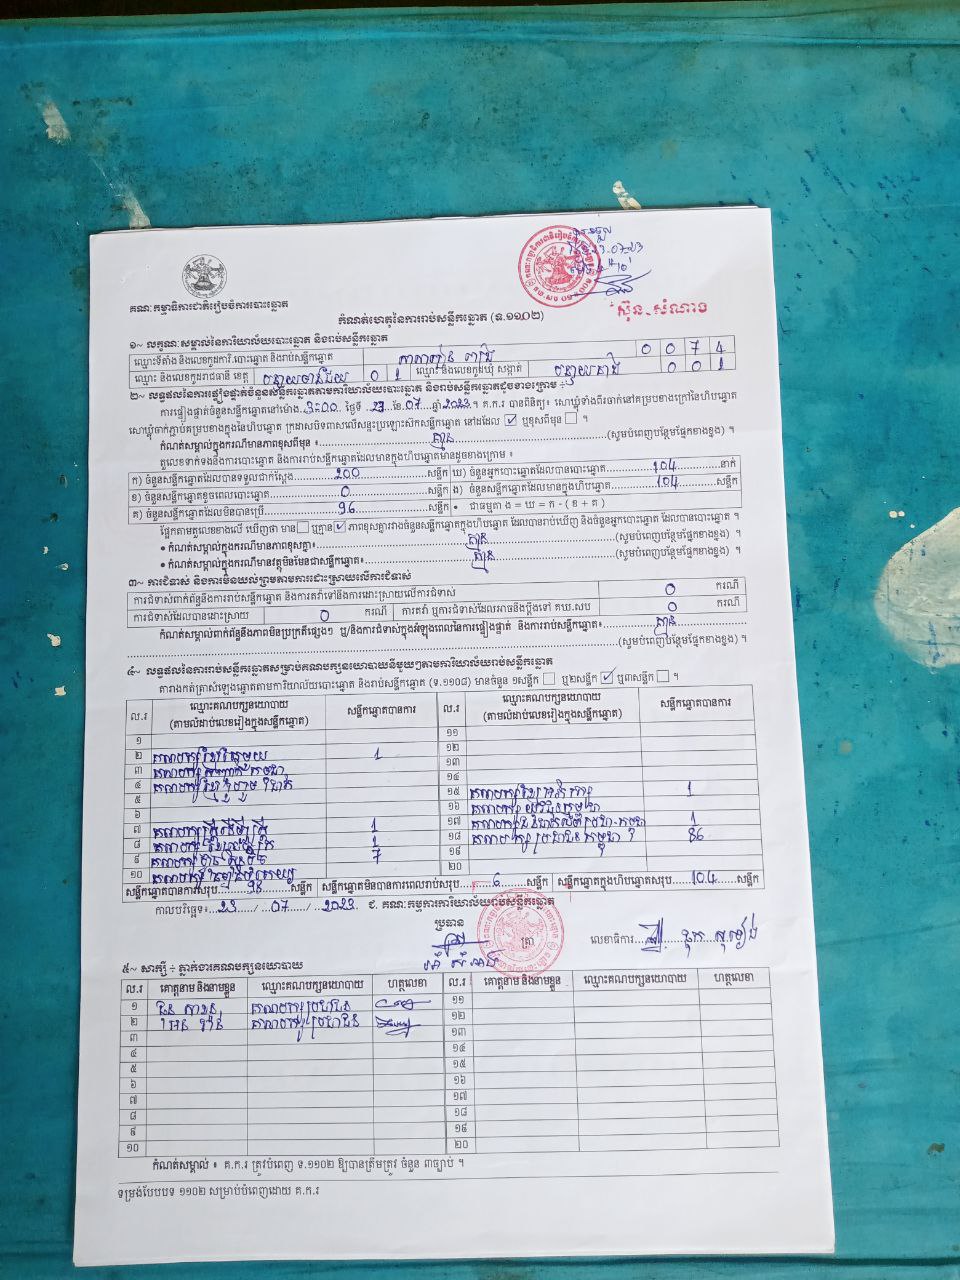 គណៈកម្មាធិការជាតិរៀបចំការបោះឆ្នោត
ស៊ុន សំណាង
កំណត់ហេតុនៃការរាប់សន្លឹកឆ្នោត (ទ.១១០២)
១~ លក្ខណៈសម្គាល់នៃការិយាល័យបោះឆ្នោត និងរាប់សន្លឹកឆ្នោត
ឈ្មោះទីតាំង និងលេខកូដការិ.បោះឆ្នោត និងរាប់សន្លឹកឆ្នោត 0 0 7 4
ឈ្មោះ និងលេខកូដរាជធានី ខេត្ត បន្ទាយមានជ័យ 0 1 ឈ្មោះ និងលេខកូដឃុំ សង្កាត់ 0 0 1
២~ លទ្ធផលនៃការផ្ទៀងផ្ទាត់ចំនួនសន្លឹកឆ្នោតតាមការិយាល័យបោះឆ្នោត និងរាប់សន្លឹកឆ្នោតដូចខាងក្រោម ៖
ការផ្ទៀងផ្ទាត់ចំនួនសន្លឹកឆ្នោតនៅម៉ោង 3:00 ថ្ងៃទី 23 ខែ 07 ឆ្នាំ 2023 ។ គ.ក.រ បានពិនិត្យ៖ សោឃ្លុំទាំងពីរចាក់នៅគម្របខាងក្រៅនៃហិបឆ្នោត
សោឃ្លុំចាក់ភ្ជាប់គម្របខាងក្នុងនៃហិបឆ្នោត ក្រដាសបិទពាសលើសន្ទះប្រឡោះស៊កសន្លឹកឆ្នោត នៅដដែល ☑ ឬខុសពីមុន ☐ ។
កំណត់សម្គាល់ក្នុងករណីមានភាពខុសពីមុន ៖ គ្មាន (សូមបំពេញបន្ថែមផ្នែកខាងខ្នង) ។
តួលេខទាក់ទងនឹងការបោះឆ្នោត និងការរាប់សន្លឹកឆ្នោតដែលមានក្នុងហិបឆ្នោតមានដូចខាងក្រោម ៖
ក) ចំនួនសន្លឹកឆ្នោតដែលបានទទួលជាក់ស្តែង 200 សន្លឹក ឃ) ចំនួនអ្នកបោះឆ្នោតដែលបានបោះឆ្នោត 104 នាក់
ខ) ចំនួនសន្លឹកឆ្នោតខូចពេលបោះឆ្នោត 0 សន្លឹក ង) ចំនួនសន្លឹកឆ្នោតដែលមានក្នុងហិបឆ្នោត 104 សន្លឹក
គ) ចំនួនសន្លឹកឆ្នោតដែលមិនបានប្រើ 96 សន្លឹក • ជាធម្មតា ង = ឃ = ក - ( ខ + គ )
ផ្អែកតាមតួលេខខាងលើ ឃើញថា មាន ☐ ឬគ្មាន ☑ ភាពខុសគ្នារវាងចំនួនសន្លឹកឆ្នោតក្នុងហិបឆ្នោត ដែលបានរាប់ឃើញ និងចំនួនអ្នកបោះឆ្នោត ដែលបានបោះឆ្នោត ។
• កំណត់សម្គាល់ក្នុងករណីមានភាពខុសគ្នា៖ គ្មាន (សូមបំពេញបន្ថែមផ្នែកខាងខ្នង) ។
• កំណត់សម្គាល់ក្នុងករណីមានវត្ថុមិនមែនជាសន្លឹកឆ្នោត៖ គ្មាន (សូមបំពេញបន្ថែមផ្នែកខាងខ្នង) ។
៣~ ការជំទាស់ និងការមិនយល់ព្រមតាមការដោះស្រាយលើការជំទាស់
ការជំទាស់ពាក់ព័ន្ធនឹងការរាប់សន្លឹកឆ្នោត និងការតវ៉ាទៅនឹងការដោះស្រាយលើការជំទាស់ 0 ករណី
ការជំទាស់ដែលបានដោះស្រាយ 0 ករណី ការតវ៉ា ឬការជំទាស់ដែលអាចនឹងប្តឹងទៅ គឃ.សប 0 ករណី
កំណត់សម្គាល់ពាក់ព័ន្ធនឹងភាពមិនប្រក្រតីផ្សេងៗ ឬ/និងការជំទាស់ក្នុងអំឡុងពេលនៃការផ្ទៀងផ្ទាត់ និងការរាប់សន្លឹកឆ្នោត៖ គ្មាន
(សូមបំពេញបន្ថែមផ្នែកខាងខ្នង) ។
៤~ លទ្ធផលនៃការរាប់សន្លឹកឆ្នោតសម្រាប់គណបក្សនយោបាយនីមួយៗតាមការិយាល័យរាប់សន្លឹកឆ្នោត
តារាងកត់ត្រាសំឡេងឆ្នោតតាមការិយាល័យបោះឆ្នោត និងរាប់សន្លឹកឆ្នោត (ទ.១១០៨) មានចំនួន ១សន្លឹក ☐ ឬ២សន្លឹក ☑ ឬ៣សន្លឹក ☐ ។
ល.រ ឈ្មោះគណបក្សនយោបាយ (តាមលំដាប់លេខរៀងក្នុងសន្លឹកឆ្នោត) សន្លឹកឆ្នោតបានការ ល.រ ឈ្មោះគណបក្សនយោបាយ (តាមលំដាប់លេខរៀងក្នុងសន្លឹកឆ្នោត) សន្លឹកឆ្នោតបានការ
១ ១១
២ គណបក្ស 1 ១២
៣ គណបក្ស ១៣
៤ គណបក្ស ១៤
៥ ១៥ គណបក្ស 1
៦ ១៦ គណបក្ស
៧ គណបក្ស 1 ១៧ 1
៨ គណបក្ស 1 ១៨ គណបក្សប្រជាជនកម្ពុជា 86
៩ គណបក្ស 7 ១៩
១០ គណបក្ស ២០
សន្លឹកឆ្នោតបានការសរុប 98 សន្លឹក សន្លឹកឆ្នោតមិនបានការពេលរាប់សរុប 6 សន្លឹក សន្លឹកឆ្នោតក្នុងហិបឆ្នោតសរុប 104 សន្លឹក
កាលបរិច្ឆេទ៖ 23 / 07 / 2023 ជ. គណៈកម្មការការិយាល័យរាប់សន្លឹកឆ្នោត
ប្រធាន
ត្រា លេខាធិការ
៥~ សាក្សី ÷ ភ្នាក់ងារគណបក្សនយោបាយ
ល.រ គោត្តនាម និងនាមខ្លួន ឈ្មោះគណបក្សនយោបាយ ហត្ថលេខា ល.រ គោត្តនាម និងនាមខ្លួន ឈ្មោះគណបក្សនយោបាយ ហត្ថលេខា
១ គណបក្សប្រជាជន ១១
២ គណបក្សប្រជាជន ១២
៣ ១៣
៤ ១៤
៥ ១៥
៦ ១៦
៧ ១៧
៨ ១៨
៩ ១៩
១០ ២០
កំណត់សម្គាល់ ៖ គ.ក.រ ត្រូវបំពេញ ទ.១១០២ ឱ្យបានត្រឹមត្រូវ ចំនួន ៣ច្បាប់ ។
ទម្រង់បែបបទ ១១០២ សម្រាប់បំពេញដោយ គ.ក.រ